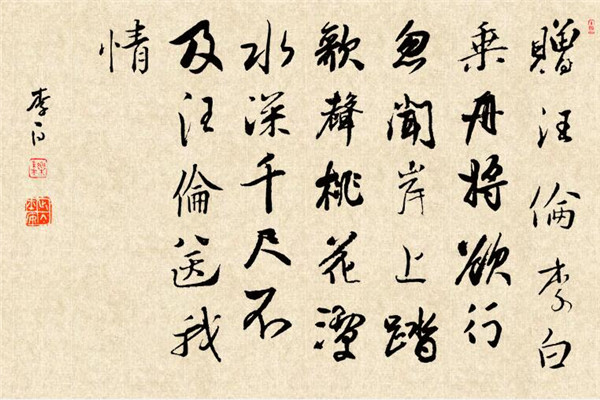 贈汪倫李白
乘舟將欲行
忽聞岸上踏
歌聲桃花潭
水深千尺不
及汪倫送我
情
李白